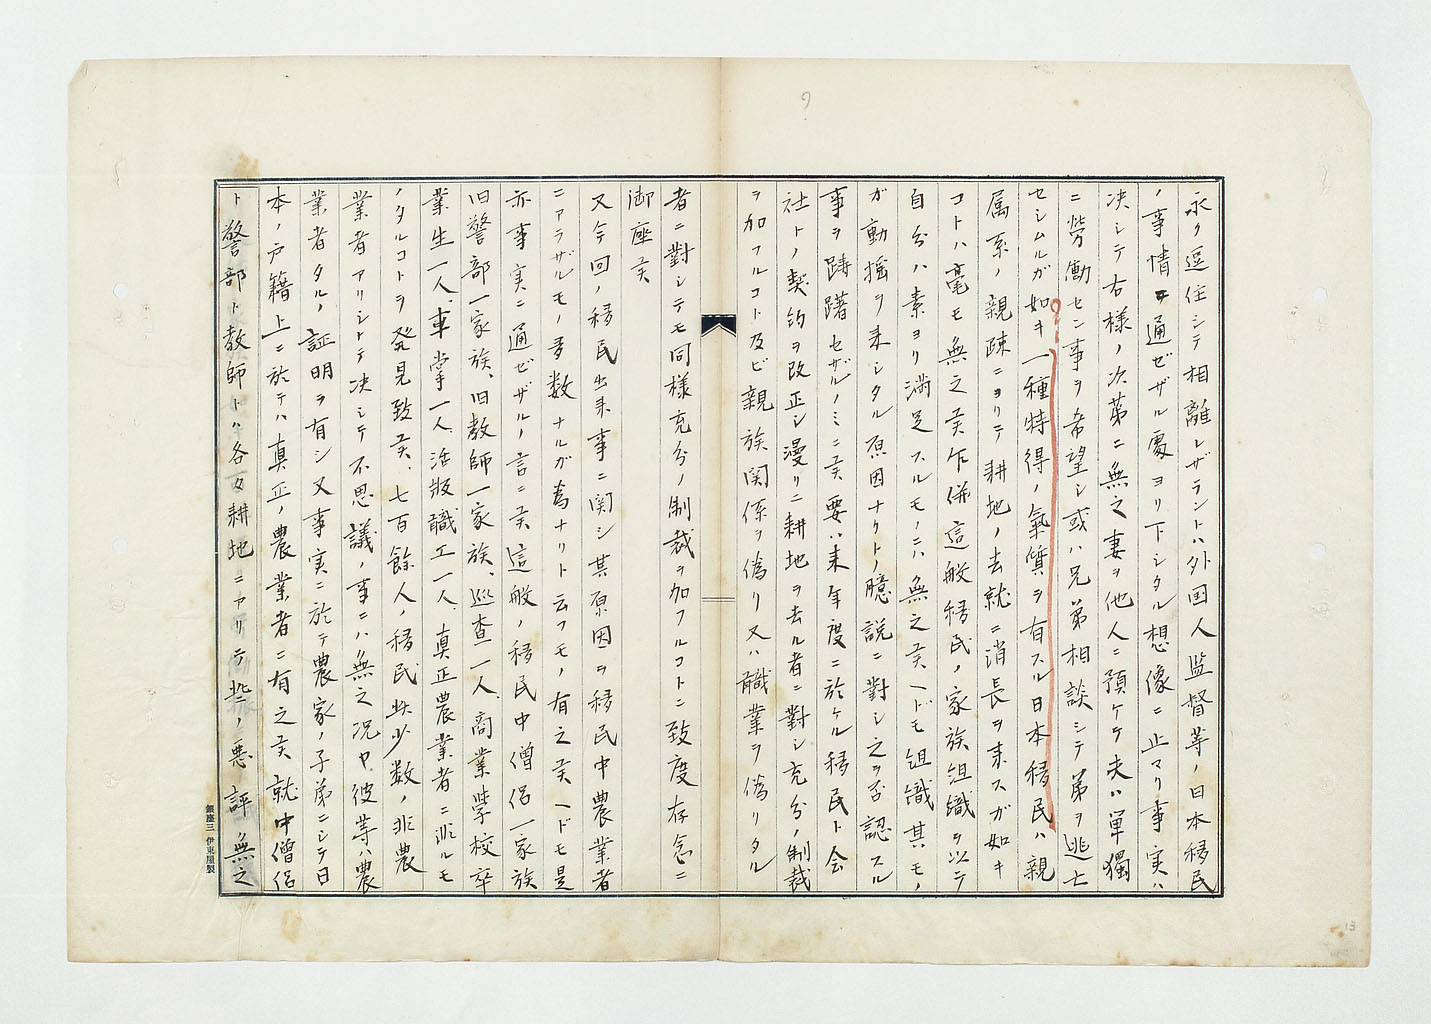 永ク逗住シテ相離レザラントハ外国人監督等ノ日本移民
ノ事情ニ通ゼザル處ヨリ下シタル想像ニ止マリ事実ハ
决シテ右様ノ次第ニ無之妻ヲ他人ニ預ケテ夫ハ單獨
ニ勞働セン事ヲ希望シ或ハ兄弟相談シテ弟ヲ逃亡
セシムルガ如キ一種特得ノ氣質ヲ有スル日本移民ハ親
属系ノ親疎ニヨリテ耕地ノ去就ニ消長ヲ来スガ如キ
コトハ毫モ無之候乍併這般移民ノ家族组織ヲ以テ
自分ハ素ヨリ満足スルモノニハ無之候ヘドモ组織其モノ
ガ動揺ヲ来シタル原因ナリトノ臆説ニ對シ之ヲ否認スル
事ヲ躊躇セザルノミニ候要ハ来年度ニ於ケル移民ト会
社トノ契約ヲ改正シ漫リニ耕地ヲ去ル者ニ對シ充分ノ制裁
ヲ加フルコト及ビ親族関係ヲ偽リ又ハ職業ヲ偽リタル
者ニ對シテモ同様充分ノ制裁ヲ加フルコトニ致度存念ニ
御座候
又今回ノ移民出来事ニ関シ其原因ヲ移民中農業者
ニアラザルモノ多数ナルガ為ナリト云フモノ有之候ヘドモ是
亦事実ニ通ゼザルノ言ニ候這般ノ移民中僧侶一家族
旧警部一家族、旧教師一家族、巡査一人、商業学校卒
業生一人、車掌一人、活版職工一人、真正農業者ニ非ルモ
ノタルコトヲ発見致候、七百餘人ノ移民此少数ノ非農
業者アリシトテ决シテ不思議ノ事ニハ無之況ヤ彼等ハ農
業者タルノ証明ヲ有シ又事実ニ於テ農家ノ子弟ニシテ日
本ノ戸籍上ニ於テハ真正ノ農業者ニ有之候就中僧侶
ト警部ト教師トハ各々耕地ニアリテ些ノ悪評無之
銀座三 伊東屋製
13